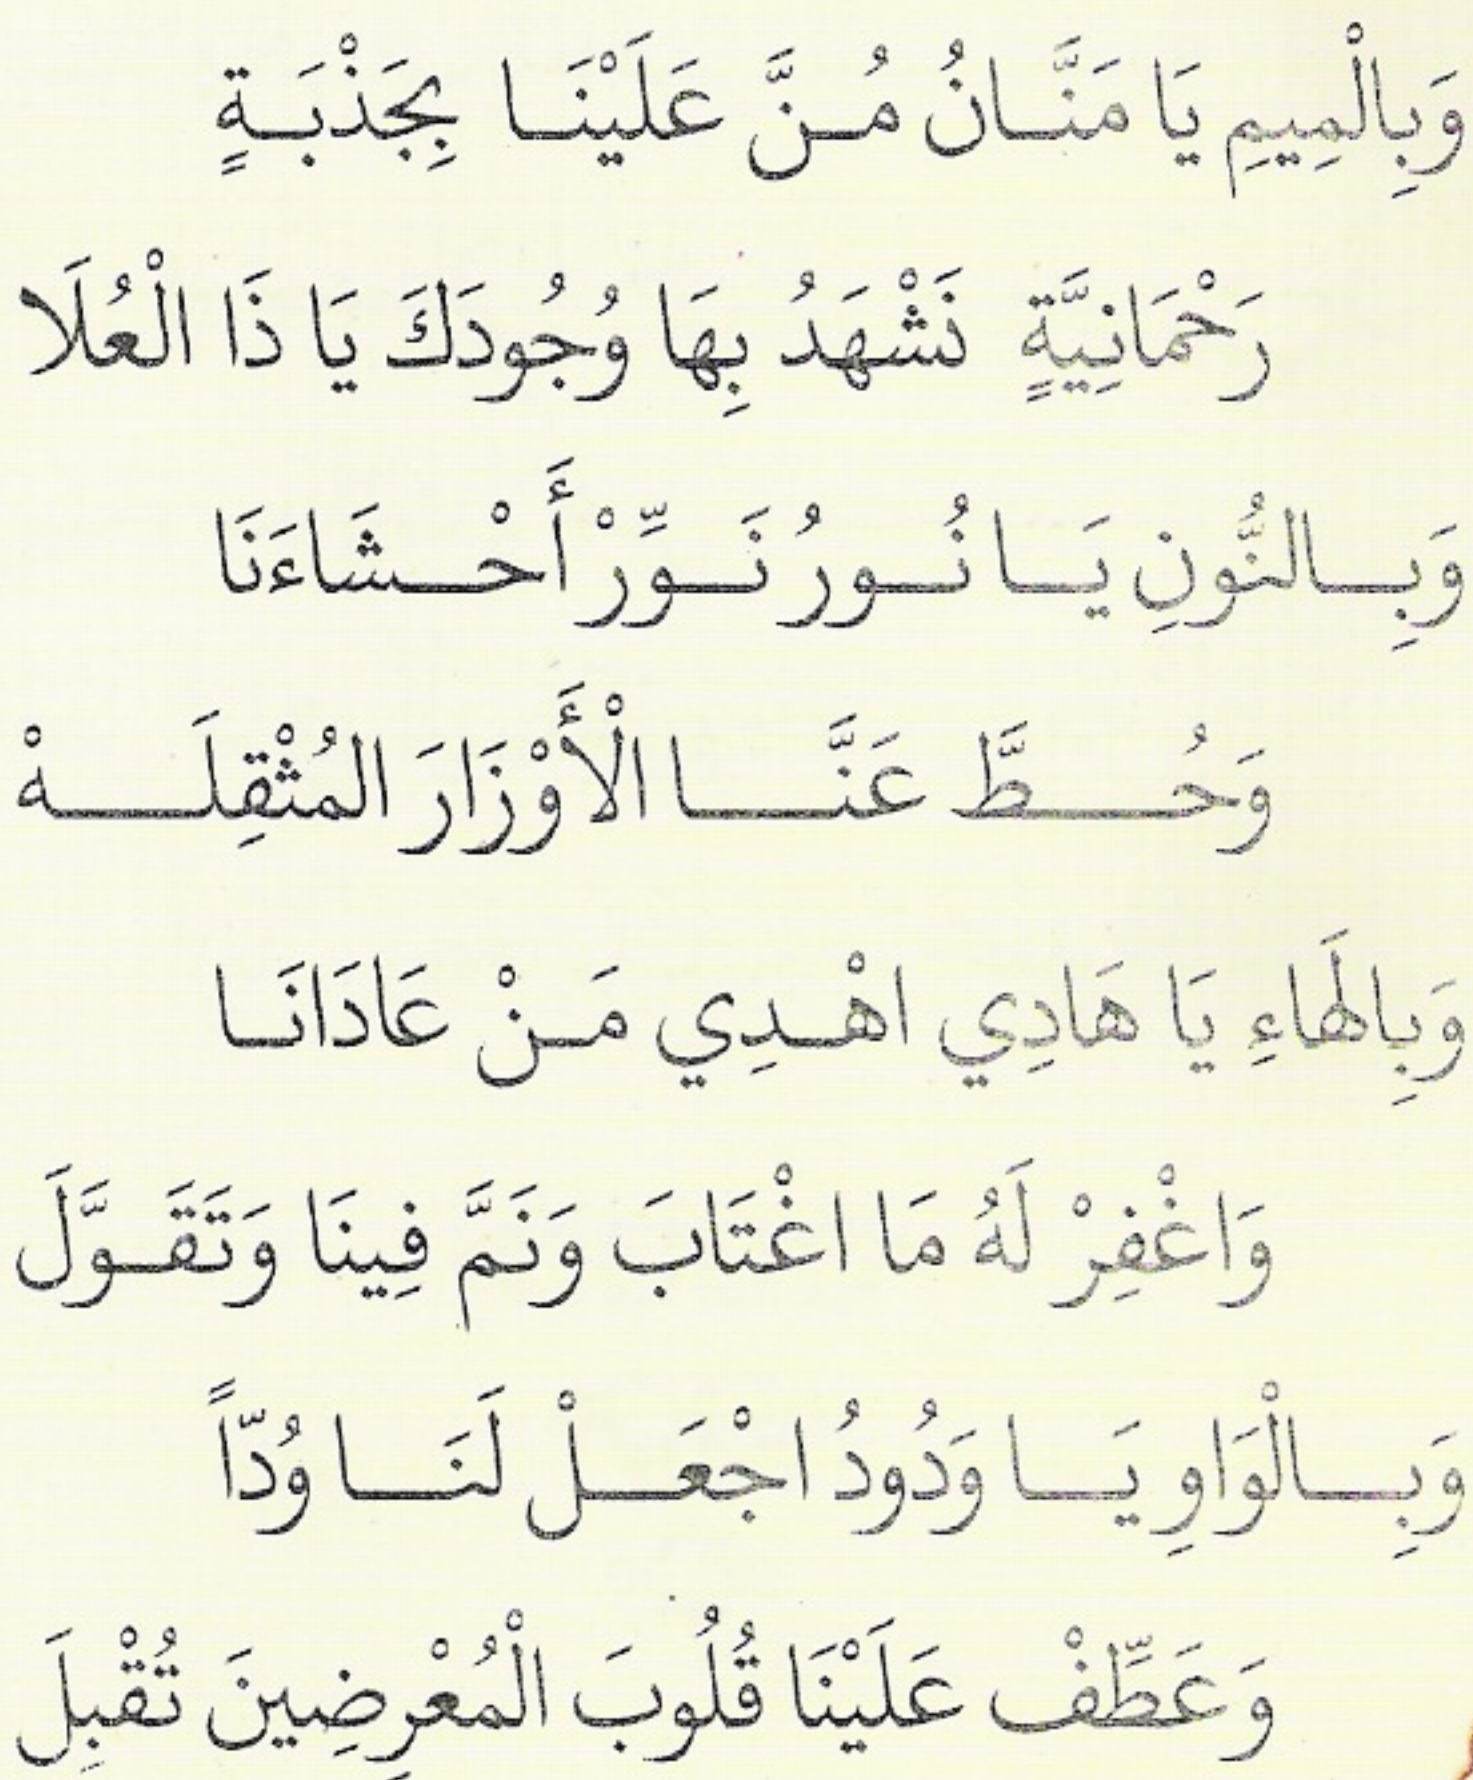 وَبِالْمِيمِ يَا مَنَّانُ مُنَّ عَلَيْنَا بِجَذْبَةٍ
رَحْمَانِيَّةٍ نَشْهَدُ بِهَا وُجُودَكَ يَا ذَا الْعُلَا
وَبِالنُّونِ يَا نُورُ نَوِّرْ أَحْشَاءَنَا
وَحُطَّ عَنَّا الْأَوْزَارَ المُثْقِلَهْ
وَبِالهَاءِ يَا هَادِي اهْدِي مَنْ عَادَانَا
وَاغْفِرْ لَهُ مَا اغْتَابَ وَنَمَّ فِينَا وَتَقَوَّلَ
وَبِالْوَاوِ يَا وَدُودُ اجْعَلْ لَنَا وُدّاً
وَعَطِّفْ عَلَيْنَا قُلُوبَ الْمُعْرِضِينَ تُقْبِلَ